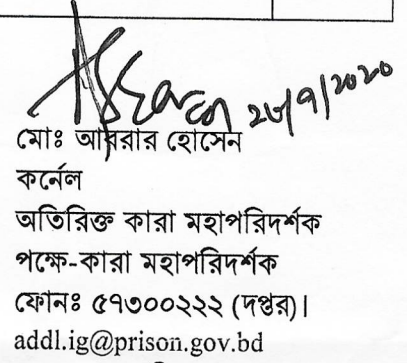 ২৮/৭/২০২০
মোঃ আবরার হোসেন
কর্নেল
অতিরিক্ত কারা মহাপরিদর্শক
পক্ষে-কারা মহাপরিদর্শক
ফোনঃ ৫৭৩০০২২২ (দপ্তর)।
addl.ig@prison.gov.bd